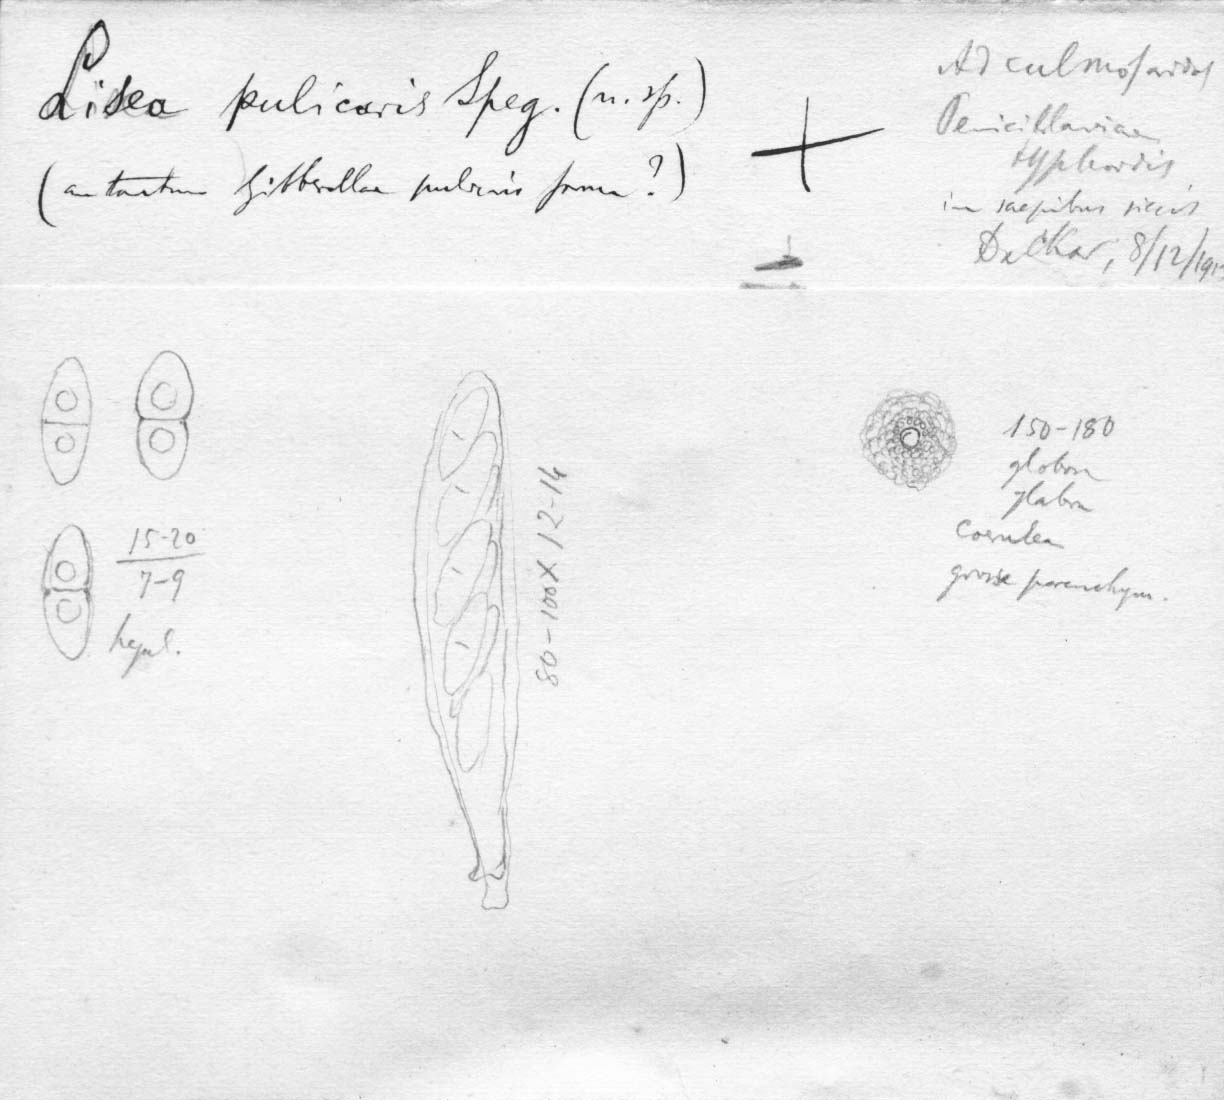 Lisea pulicaris Speg. (n. sp.)
(an tantum Gibberellae pulicaris forma?)
Ad culmos aridos
Penicillariae
typhoidis
in saepibus siccis
Dackar, 8/12/191
15-20
7-9
hyal.
80-100 x 12-14
150-180
globosa
glabra
coerulea
grosse parenchym.